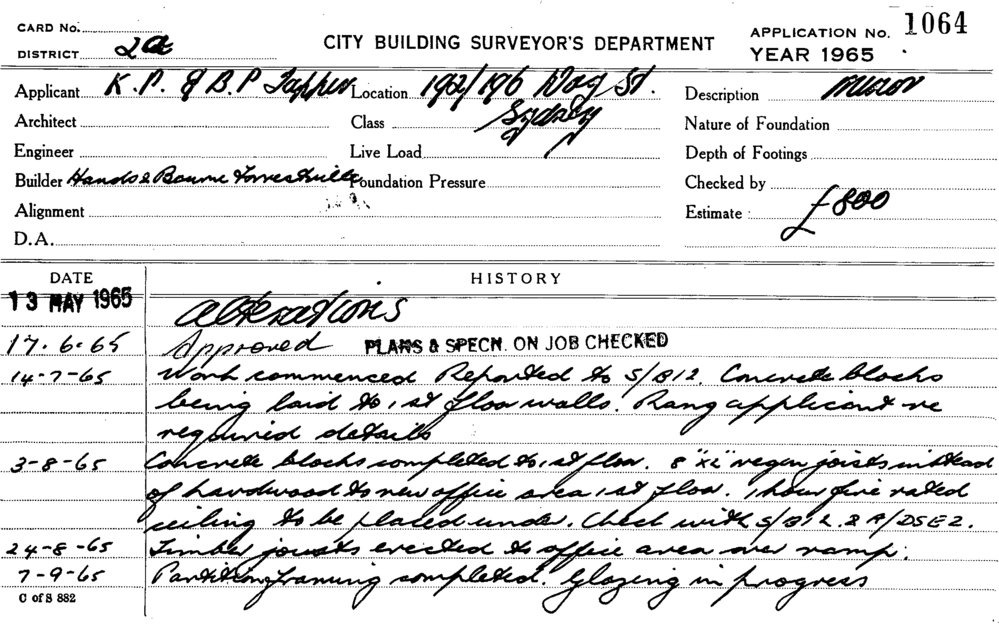 CARD No.
DISTRICT 2a
CITY BUILDING SURVEYOR'S DEPARTMENT
APPLICATION No. 1064
YEAR 1965
Applicant K. P. & B. P
Location St. Sydney
Description minor
Architect
Class
Nature of Foundation
Engineer
Live Load
Depth of Footings
Builder Hands & Bourne Forrestville
Foundation Pressure
Checked by
Alignment
Estimate £800
D.A.
DATE HISTORY
13 MAY 1965 alterations
17-6-65 Approved PLANS & SPECN. ON JOB CHECKED
14-7-65 Work commenced Reported to S/B12. Concrete blocks
being laid to 1st floor walls. Rang applicant re
required details
3-8-65 Concrete blocks completed to 1st floor. 8"x2" oregon joists instead
of hardwood to new office area 1st floor. 1 hour fire rated
ceiling to be placed under. Check with S/B12 & A/DSE2.
24-8-65 Timber joists erected to office area over ramp.
7-9-65 Partition framing completed. Glazing in progress
C of S 882